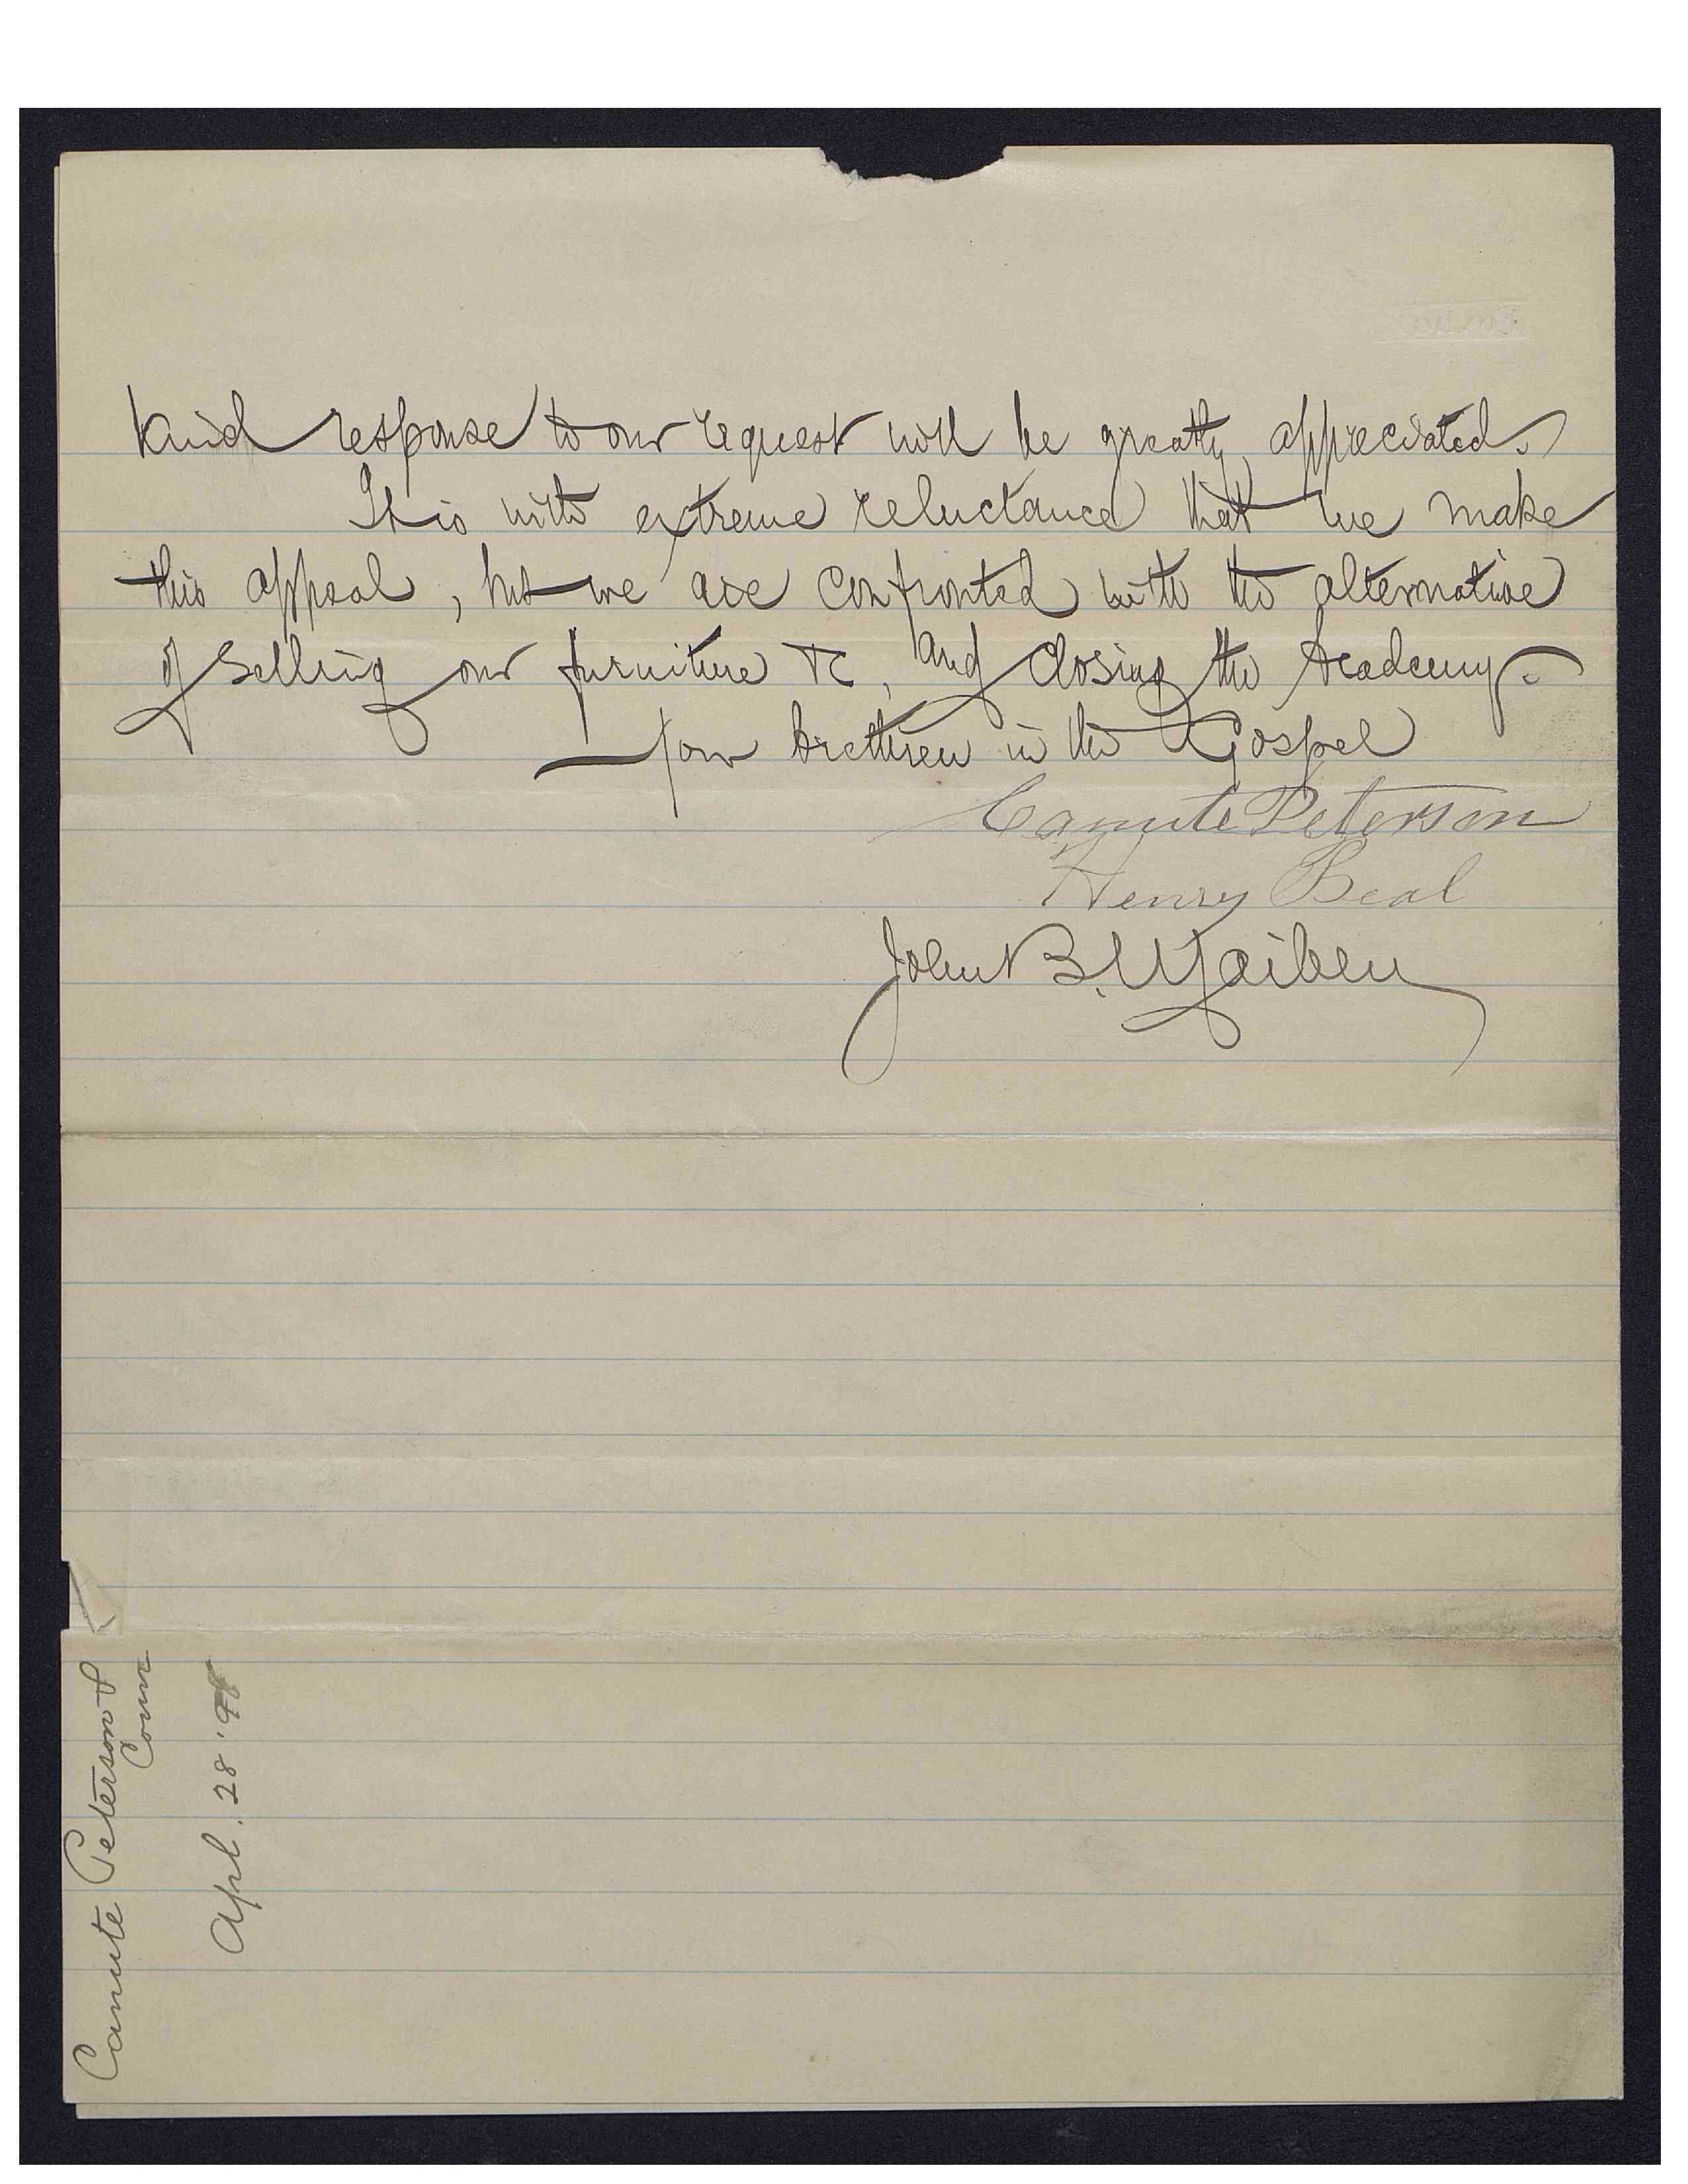 kind response to our request will be greatly appreciated.
It is with extreme reluctance that we make
this appeal, but we are confronted with the alternative
of selling our furniture &c, and closing the Academy.
Your brethren in the Gospel
Canute Peterson
Henry Beal
John B. Maiben
Canute Peterson &
Coun
Apl. 28 '98